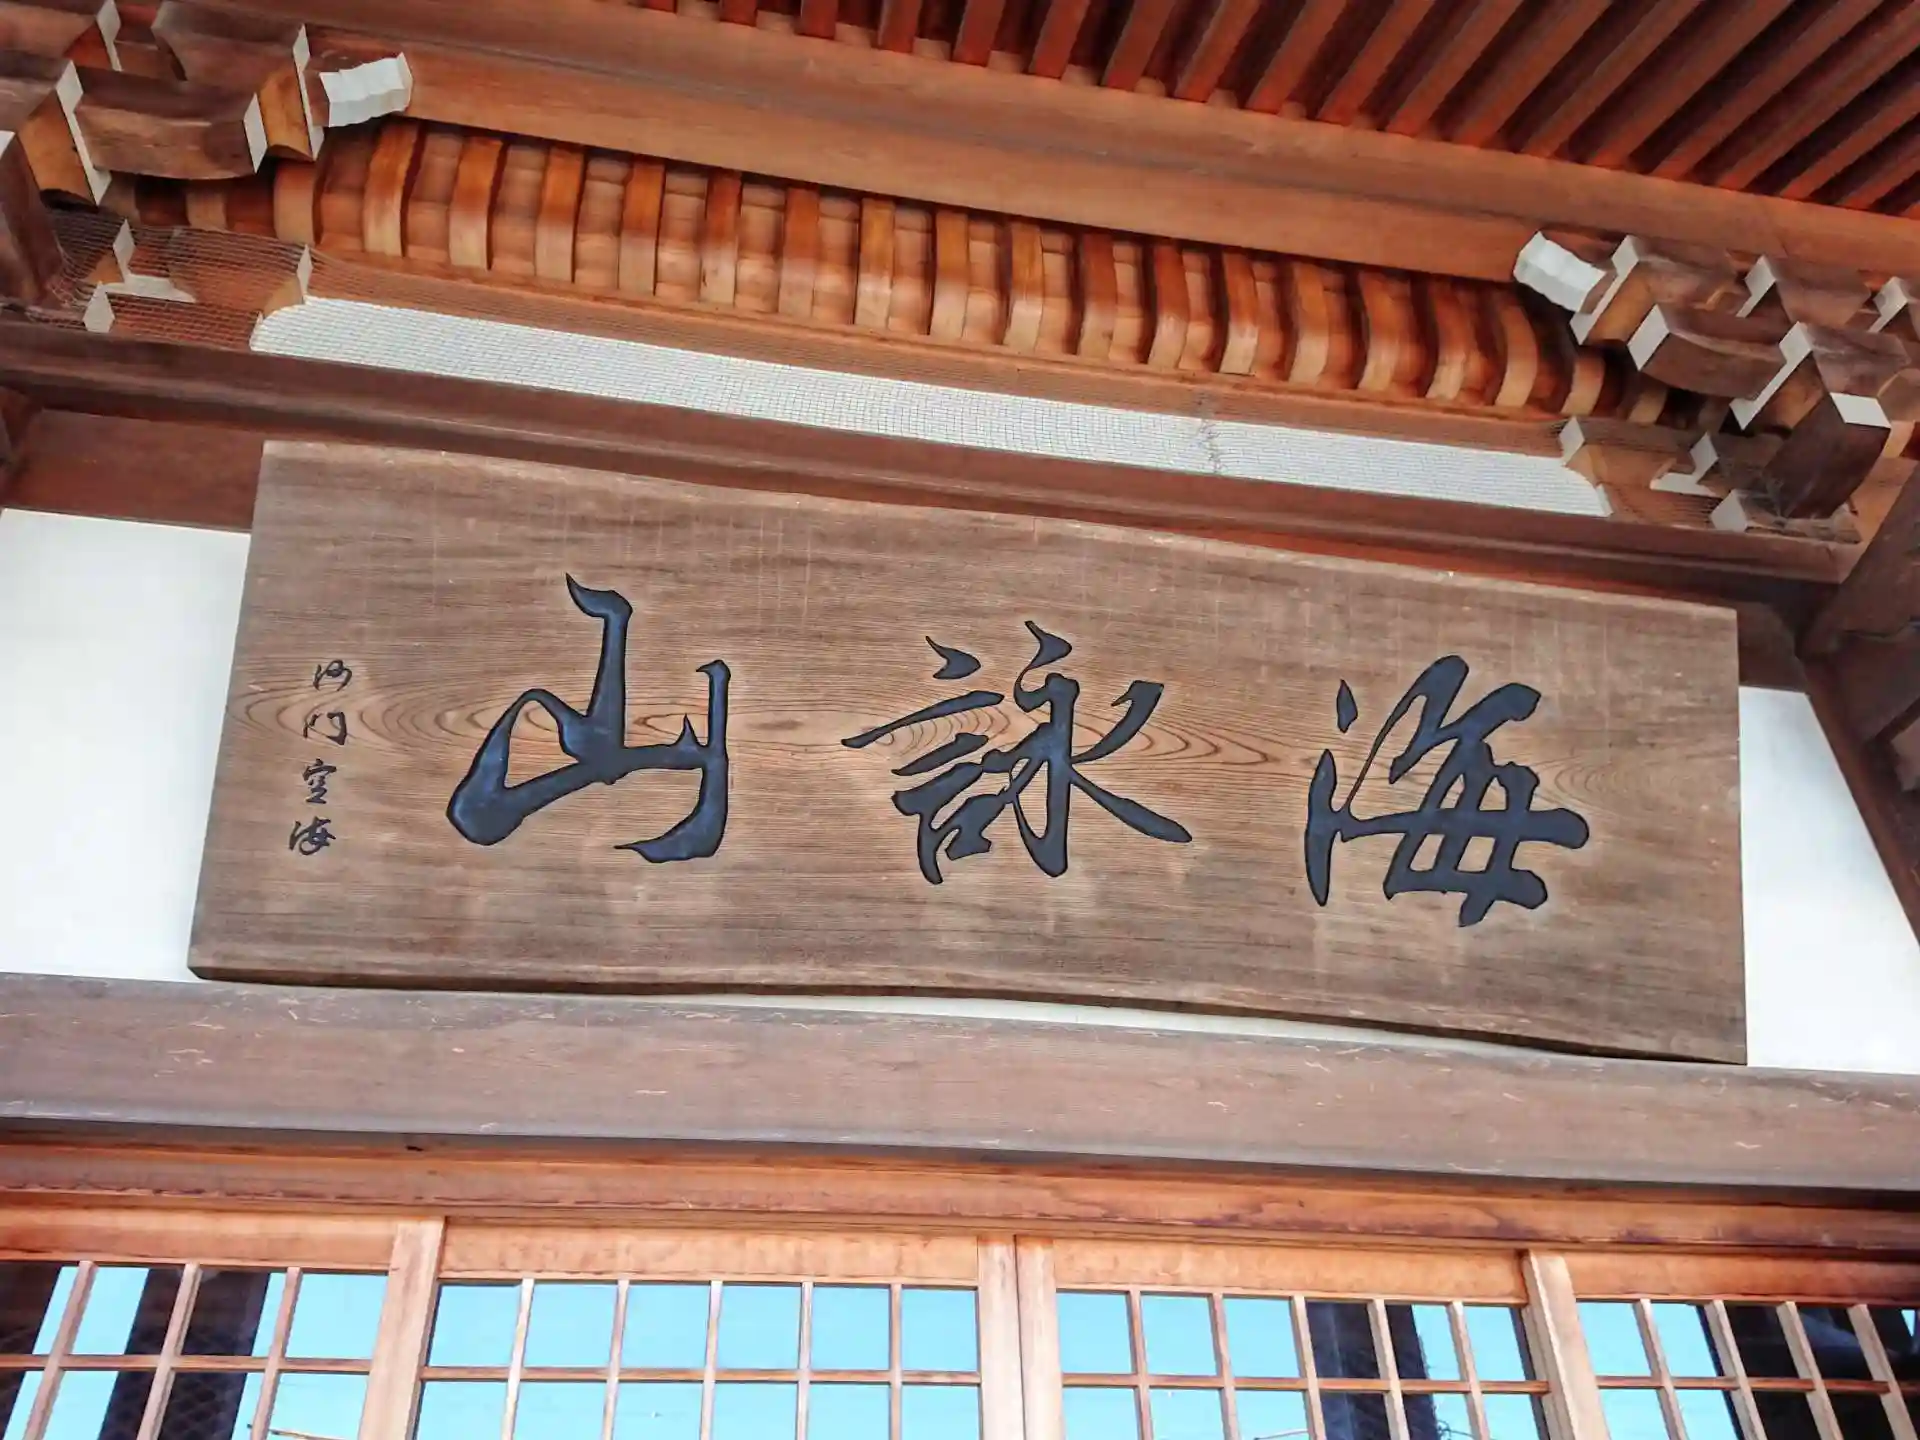 海詠山
沙門空海